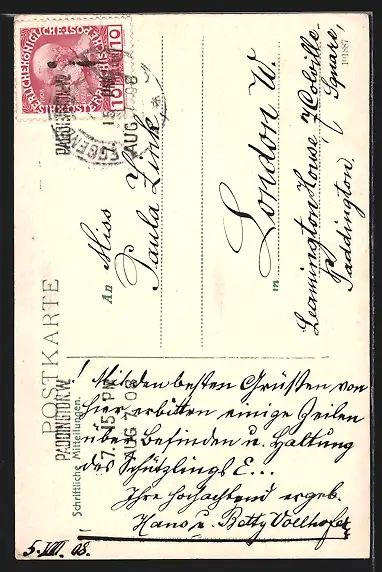 KAISERLICHE KÖNIGLICHE ÖSTERREICHISCHE POST
10 10
PADDINGTON.W.
7.15 PM
AUG 7 08
PADDINGTON.W.
7.15 PM
AUG 7 08
POSTKARTE
101887
An Miss
Paula Zink
London W.
in
Leamington House 7 Colville
Square,
Paddington.
Schriftliche Mitteilungen.
! Mit den besten Grüßen von
hier erbitten einige Zeilen
über Befinden u. Haltung
des Schützlings E...
Ihre hochachtend ergeb.
Hans u. Betty Vollhofer
5.VIII.08.